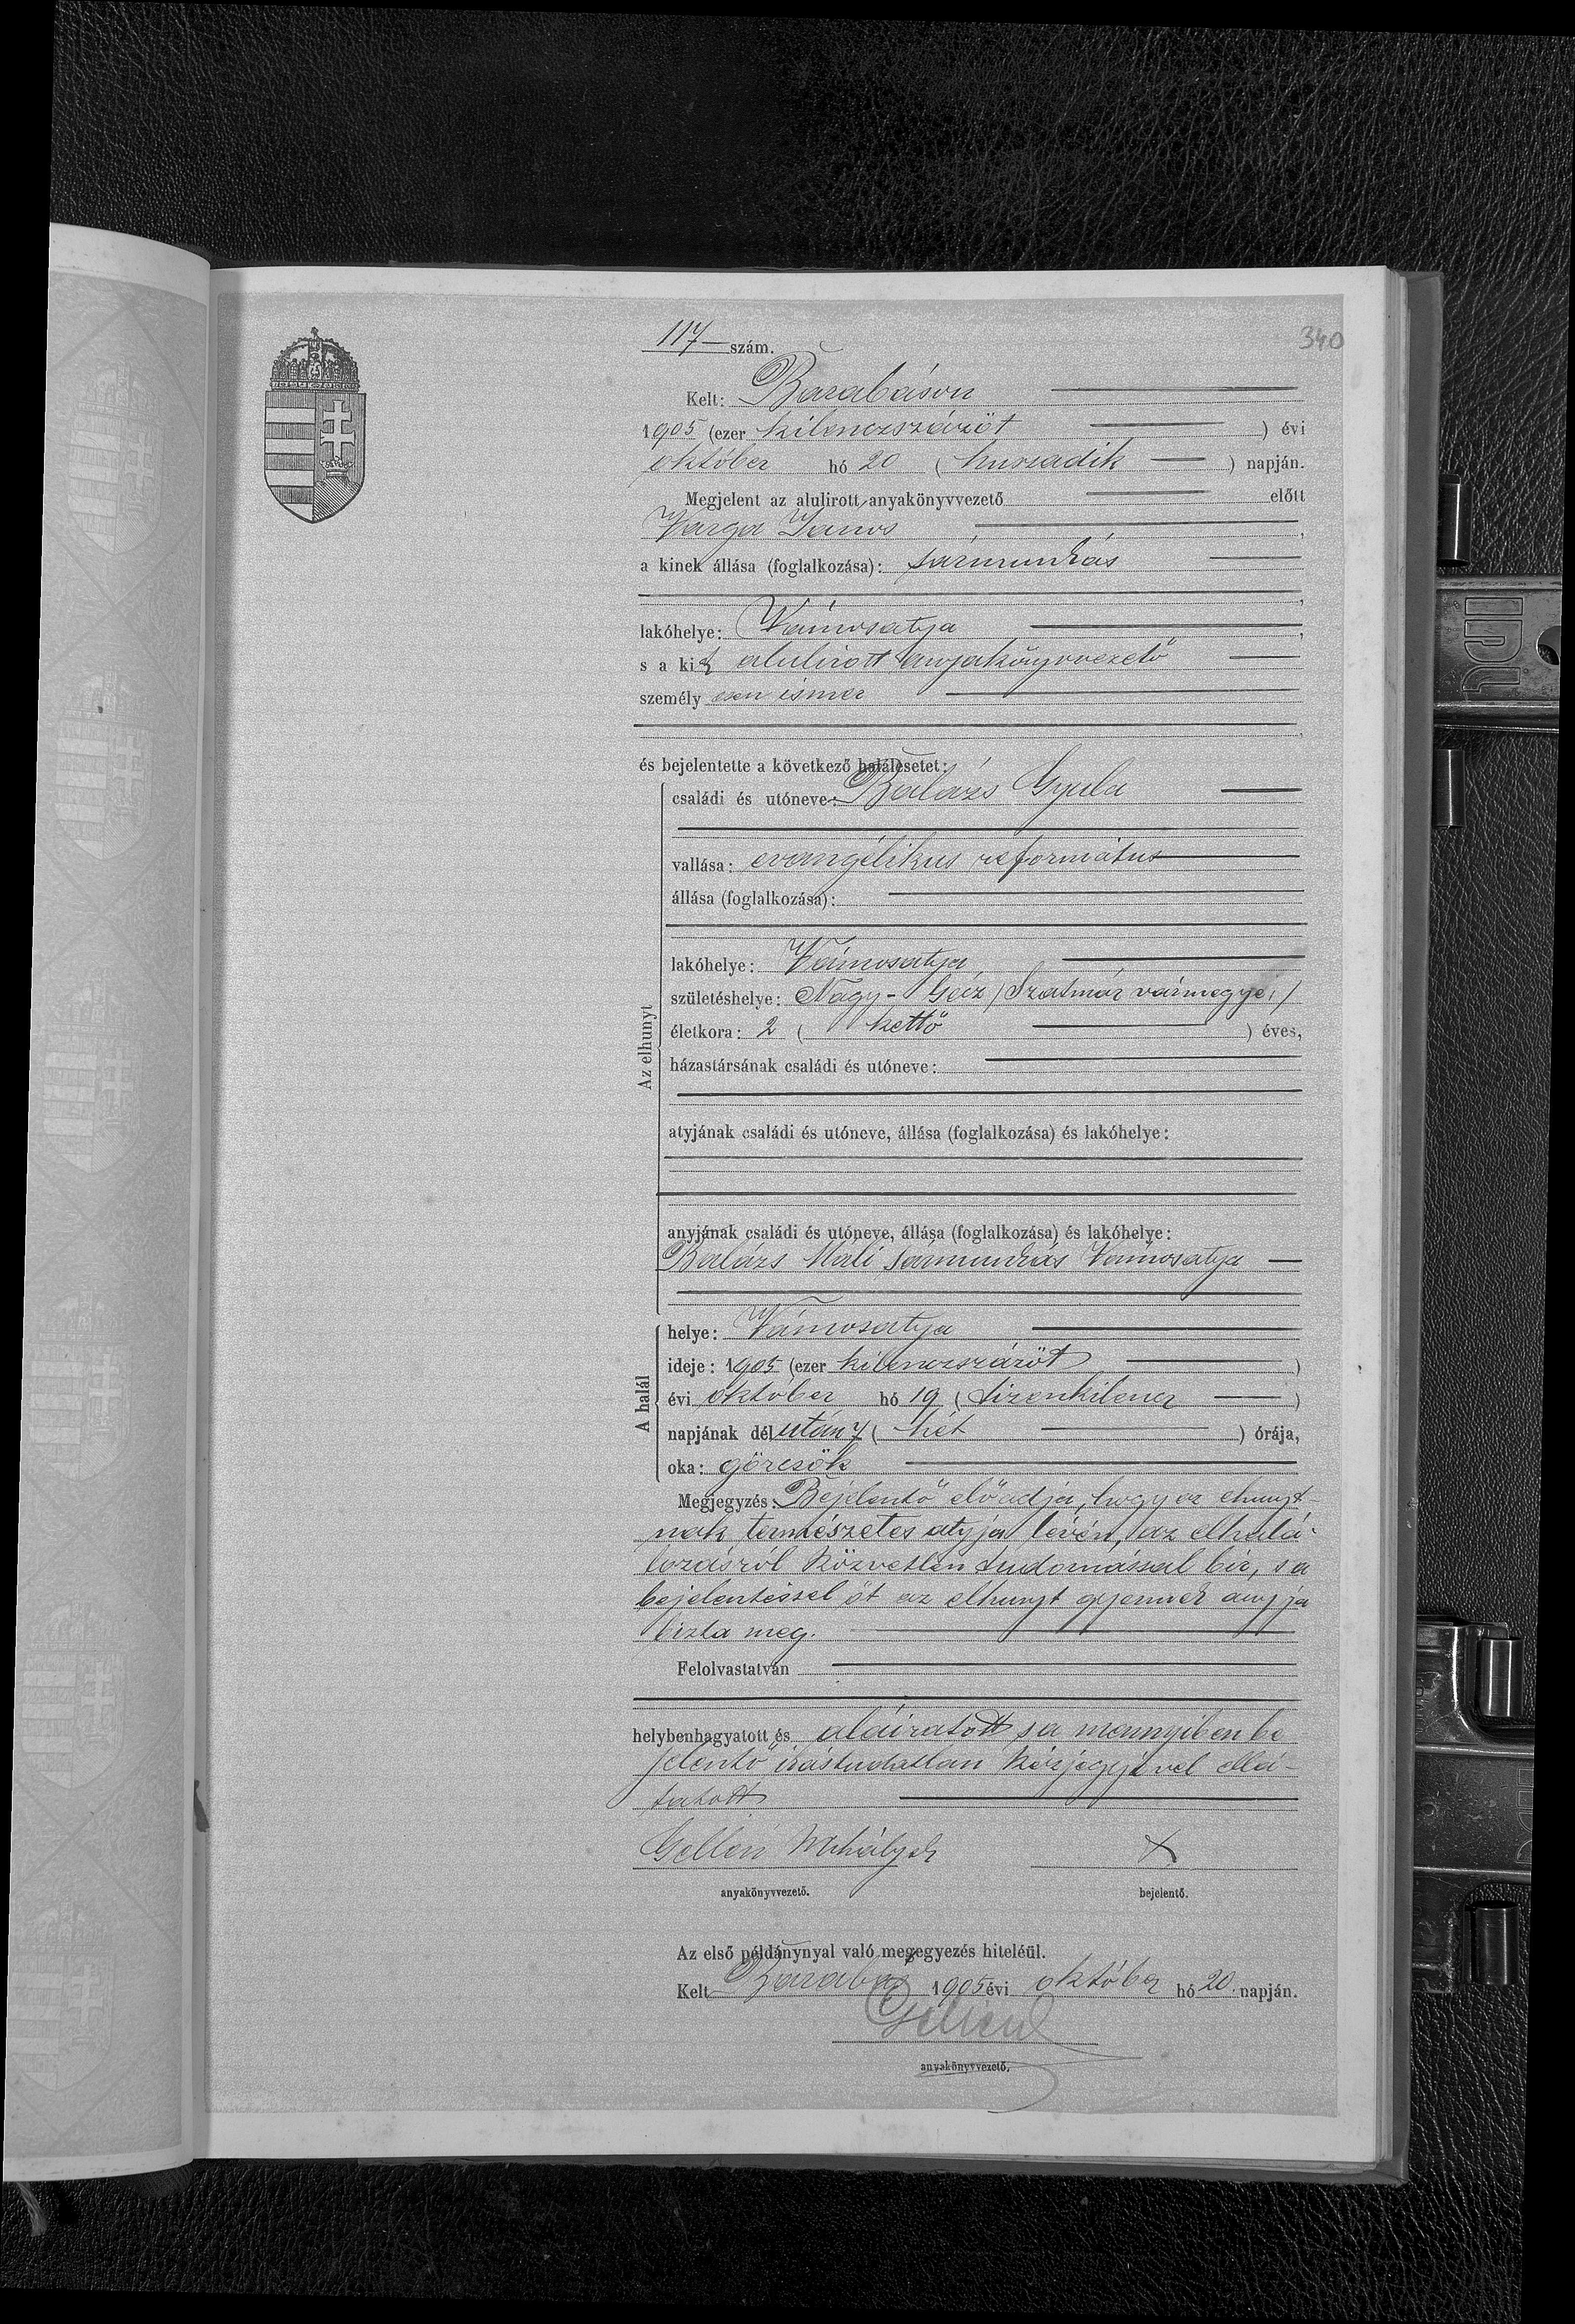 117 szám.
340
Kelt: Barabáson
1905 (ezer kilenczszázöt) évi
október hó 20 (huszadik) napján.
Megjelent az alulirott anyakönyvvezető előtt
Varga János,
a kinek állása (foglalkozása): sármunkás
lakóhelye: Vámosatya,
s a kit alulirott anyakönyvvezető
személyesen ismer
és bejelentette a következő halálesetet:
Az elhunyt
családi és utóneve: Balázs Gyula
vallása: evangélikus református
állása (foglalkozása):
lakóhelye: Vámosatya
születéshelye: Nagy-Gécz /Szatmár vármegye/
életkora: 2 (kettő) éves,
házastársának családi és utóneve:
atyjának családi és utóneve, állása (foglalkozása) és lakóhelye:
anyjának családi és utóneve, állása (foglalkozása) és lakóhelye:
Balázs Máli sármunkás Vámosatya
A halál
helye: Vámosatya
ideje: 1905 (ezer kilenczszázöt)
évi október hó 19 (tizenkilencz)
napjának délután 7 (hét) órája,
oka: görcsök
Megjegyzés: Bejelentő előadja, hogy az elhunyt-
nak természetes atyja lévén, az elhalá-
lozásról közvetlen tudomással bir, s a
bejelentéssel őt az elhunyt gyermek anyja
bizta meg.
Felolvastatván
helybenhagyatott és aláiratott s a mennyiben be
jelentő irástudatlan kézjegyével ellá-
tatott
Gellén Mihály
X
anyakönyvvezető.
bejelentő.
Az első példánynyal való megegyezés hiteléül.
Kelt Barabás 1905 évi október hó 20. napján.
Gellén
anyakönyvvezető.